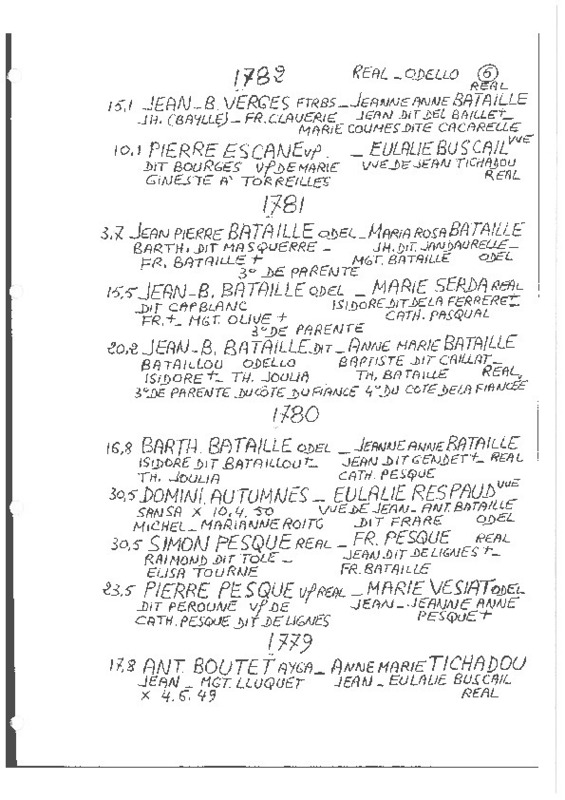 1782 REAL - ODELLO 6
REAL
15,1 JEAN-B. VERGES FTRBS - JEANNE ANNE BATAILLE
JH. (BAYLLE) - FR. CLAVERIE JEAN DIT DEL BAILLET -
MARIE COUMES DITE CACARELLE
10,1 PIERRE ESCANE vf. - EULALIE BUSCAIL VUE
DIT BOURGES vf DE MARIE VUE DE JEAN TICHADOU
GINESTE A' TORREILLES REAL
1781
3,7 JEAN PIERRE BATAILLE ODEL - MARIA ROSA BATAILLE
BARTH. DIT MASQUERRE - JH. DIT. JANDAURELLE -
FR. BATAILLE + MGT. BATAILLE ODEL
3° DE PARENTE
15,5 JEAN-B. BATAILLE ODEL - MARIE SERDA REAL
DIT CAPBLANC ISIDORE DIT DE LA FERRERE +-
FR. + - MGT. OLIVE + CATH. PASQUAL
3° DE PARENTE
20,2 JEAN-B. BATAILLE DIT - ANNE MARIE BATAILLE
BATAILLOU ODELLO BAPTISTE DIT CAILLAT -
ISIDORE + - TH. JOULIA TH. BATAILLE REAL,
3° DE PARENTE DU COTE DU FIANCE 4° DU COTE DE LA FIANCEE
1780
16,8 BARTH. BATAILLE ODEL - JEANNE ANNE BATAILLE
ISIDORE DIT BATAILLOU + - JEAN DIT GENDET + - REAL
TH. JOULIA CATH. PESQUE
30,5 DOMINI. AUTUMNES - EULALIE RESPAUD VUE
SANSA X 10.4.50 VUE DE JEAN-ANT. BATAILLE
MICHEL - MARIANNE ROITG DIT FRARE ODEL
30,5 SIMON PESQUE REAL - FR. PESQUE REAL
RAIMOND DIT TOLE - JEAN DIT DE LIGNES + -
ELISA TOURNE FR. BATAILLE
23,5 PIERRE PESQUE vf REAL - MARIE VESIAT ODEL
DIT PEROUNE vf DE JEAN - JEANNE ANNE
CATH. PESQUE DIT DE LIGNES PESQUE +
1779
17,8 ANT. BOUTET AYGA - ANNE MARIE TICHADOU
JEAN - MGT. LLUQUET JEAN - EULALIE BUSCAIL
X 4.6.49 REAL